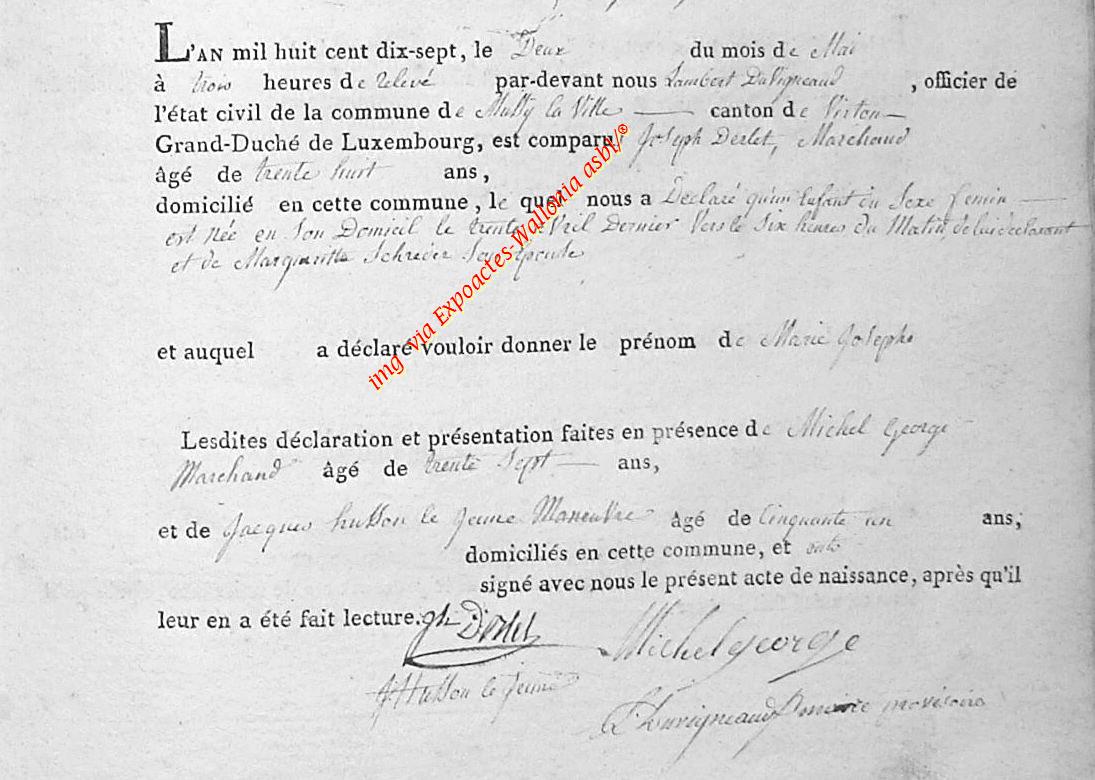 L'AN mil huit cent dix-sept, le Deux du mois de Mai
à trois heures de relevé par-devant nous Lambert Duvigneaud, officier de
l'état civil de la commune de Mussy la Ville canton de Virton
Grand-Duché de Luxembourg, est comparu Joseph Derlet, Marchand
âgé de trente huit ans,
domicilié en cette commune, le quel nous a Déclaré qu'un Enfant du Sexe femin
est Née en Son Domicil le trente Avril Dernier Vers le Six heures du Matin, de lui declarant
et de Margueritte Schreder Son Epouse
et auquel a déclaré vouloir donner le prénom de Marie Josephe
Lesdites déclaration et présentation faites en présence de Michel George
Marchand âgé de trente Sept ans,
et de Jacques husson le Jeune Maneuvre âgé de Cinquante un ans,
domiciliés en cette commune, et ont
signé avec nous le présent acte de naissance, après qu'il
leur en a été fait lecture. Derlet Michel george
J Husson le jeune
Duvigneaud provisoire
img via Expoactes-Wallonia asbl/®